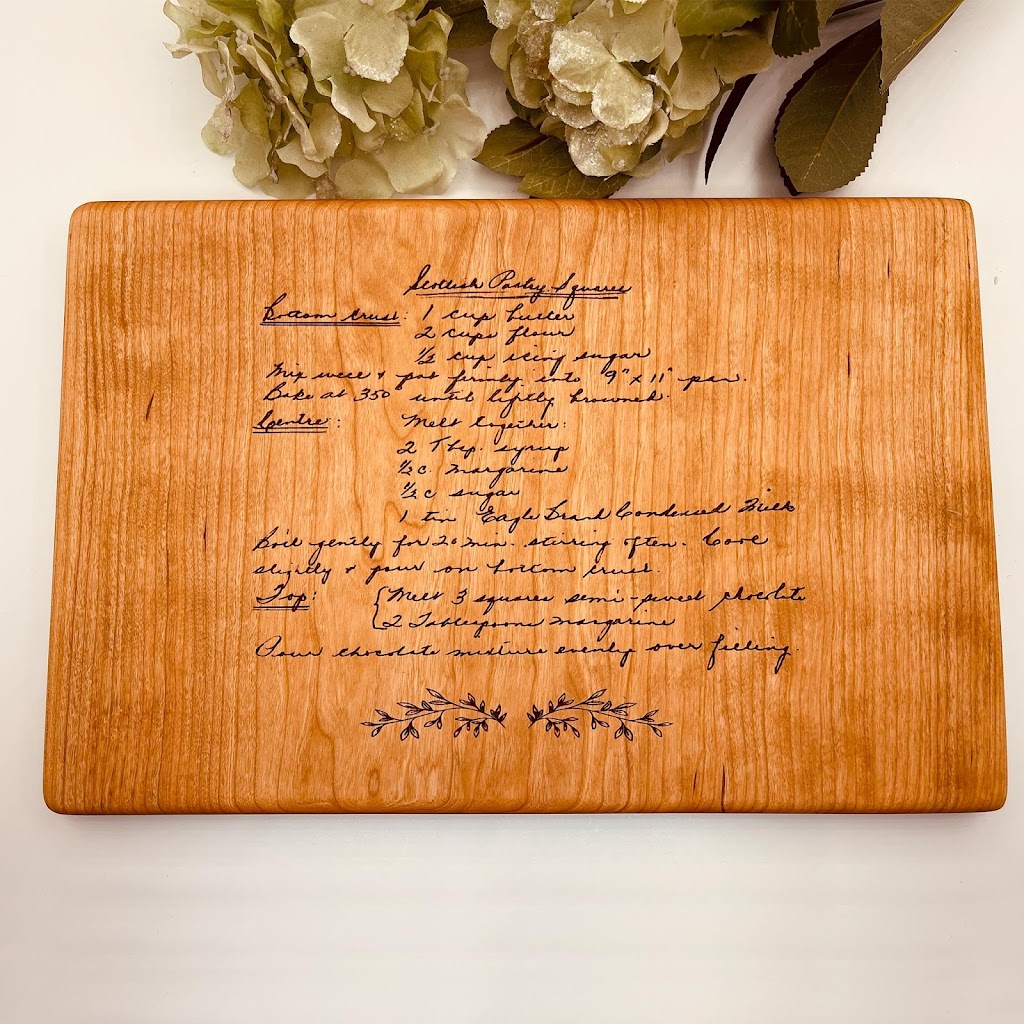 Scottish Pastry Squares
Bottom Crust: 1 cup butter
2 cups flour
1/2 cup icing sugar
Mix well & pat firmly into 9" x 11" pan.
Bake at 350° until lightly browned.
Centre: Melt together:
2 Tbsp. syrup
1/2 c. margarine
1/2 c sugar
1 tin Eagle Brand Condensed Milk
Boil gently for 20 min. stirring often. Cool
slightly & pour on bottom crust.
Top: {Melt 3 squares semi-sweet chocolate
2 Tablespoons margarine
Pour chocolate mixture evenly over filling.